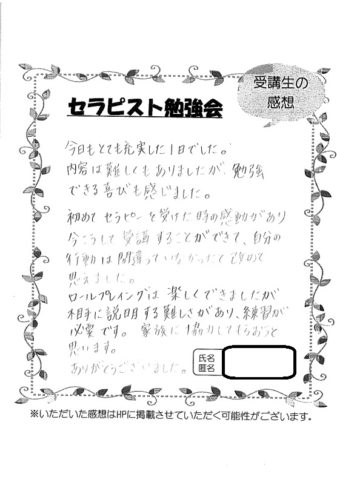 受講生の
感想
セラピスト勉強会
今日もとても充実した1日でした。
内容は難しくもありましたが、勉強
できる喜びも感じました。
初めてセラピーを受けた時の感動があり
今こうして受講することができて、自分の
行動は間違っていなかったと改めて
思えました。
ロールプレイングは楽しくできましたが
相手に説明する難しさがあり、練習が
必要です。家族に協力してもらおうと
思います。
ありがとうございました。
氏名
匿名
※いただいた感想はHPに掲載させていただく可能性がございます。